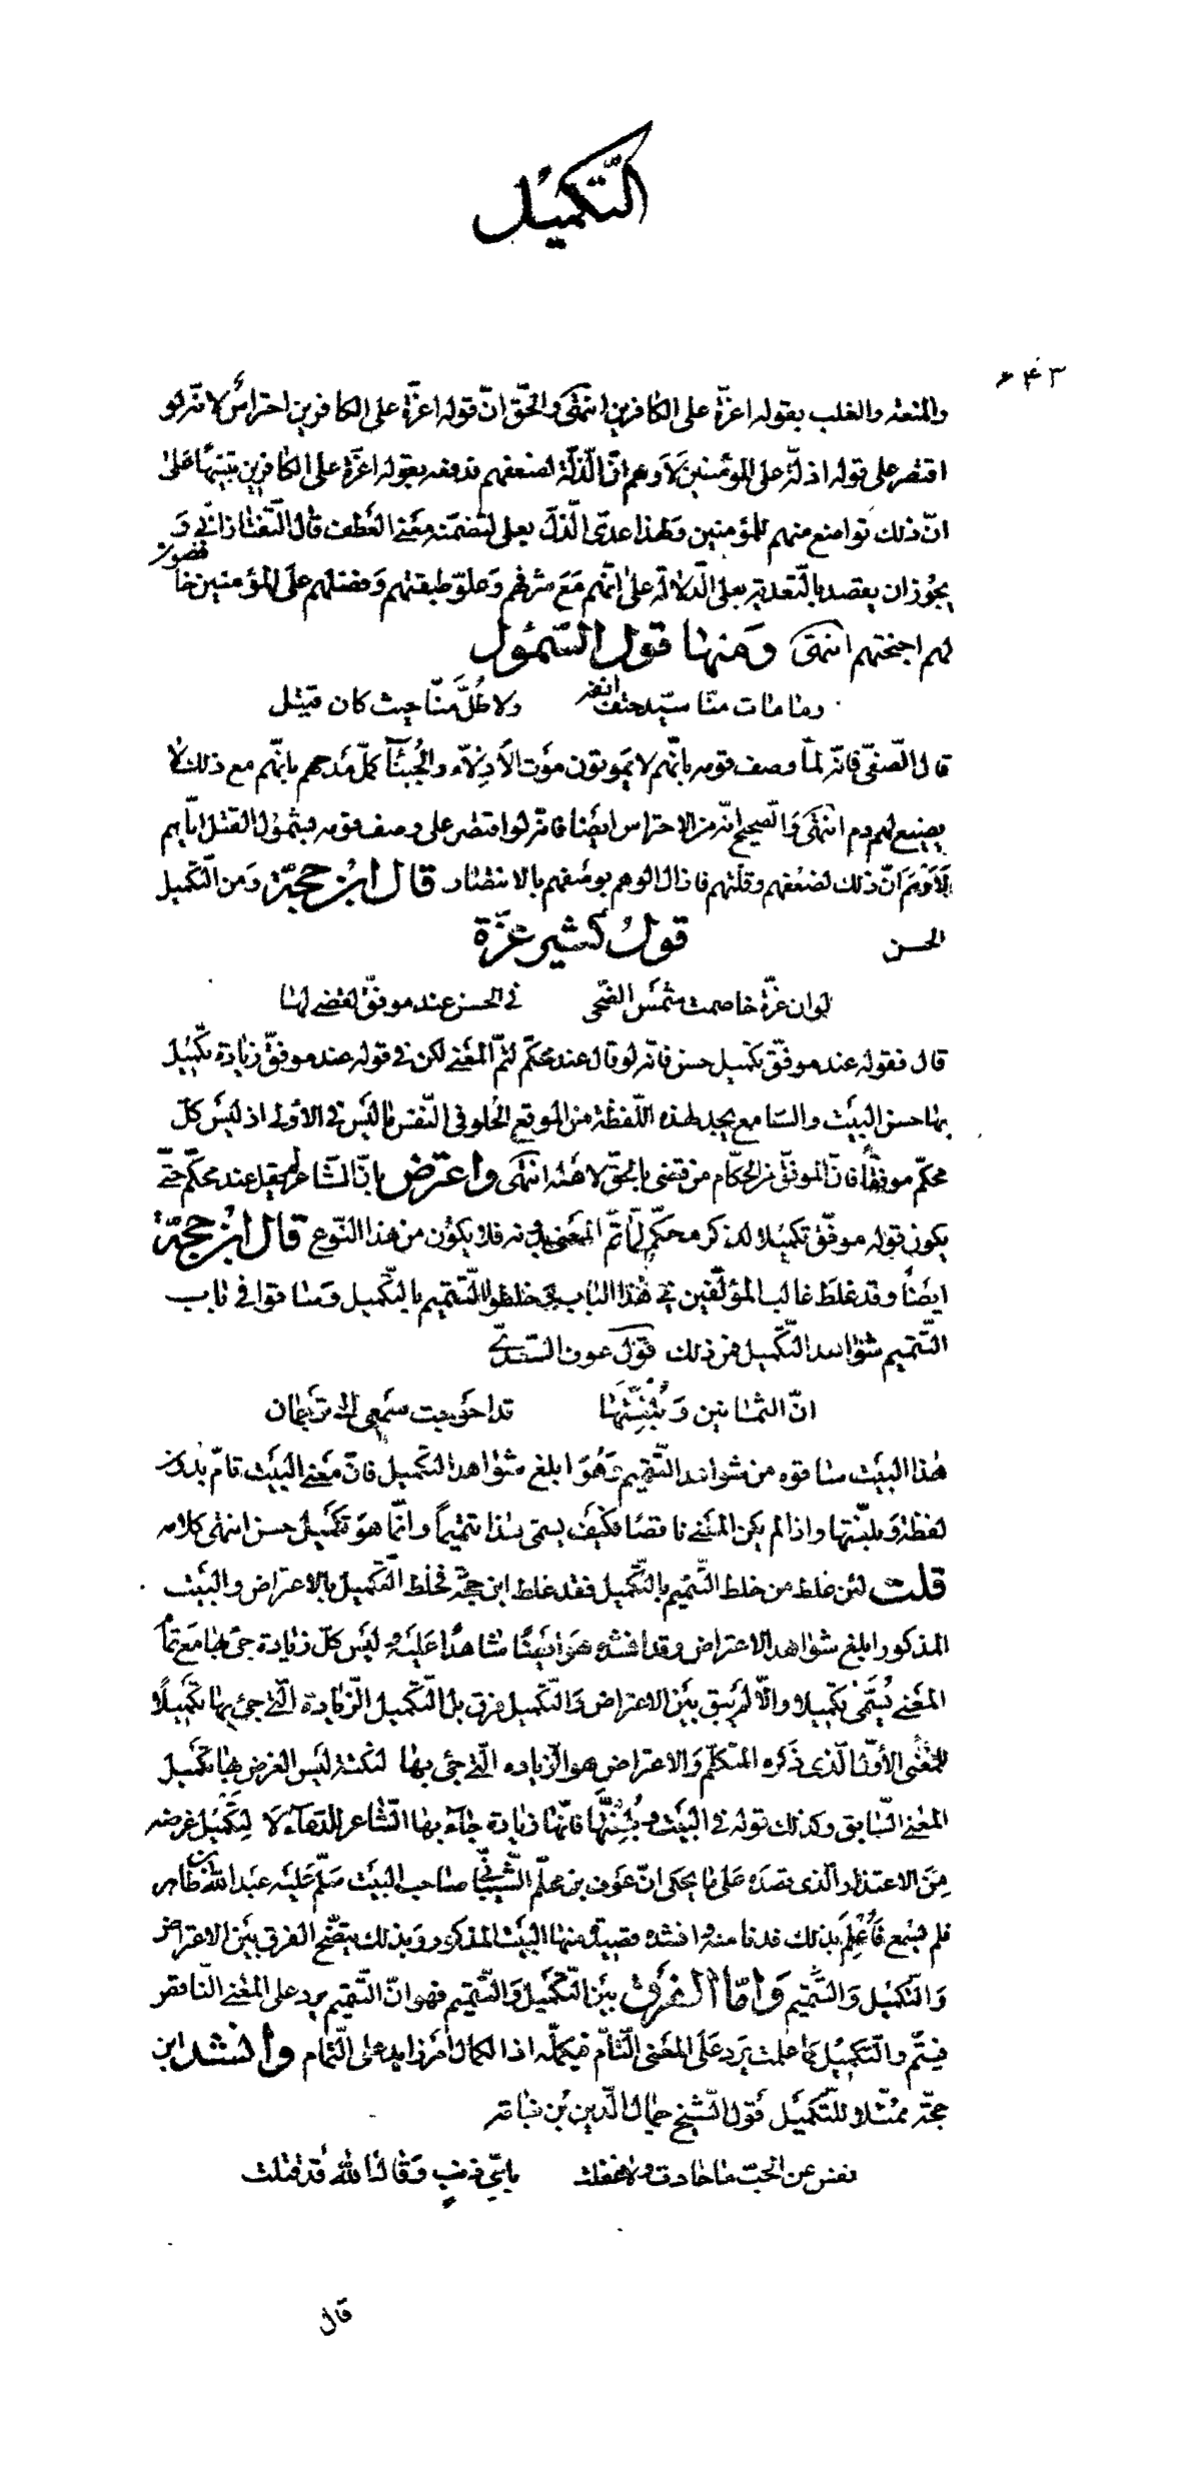 التّكميل
۶۴۳
والمنعة والغلب بقوله اعزّة على الكافرين انتهى والحقّ انّ قوله اعزّة على الكافرين احتراس لانّه لو
اقتصر على قوله اذلّة على المؤمنين لاوهم انّ الذّلّة لضعفهم فدفعه بقوله اعزّة على الكافرين تنبيهًا على
انّ ذلك تواضع منهم للمؤمنين ولهذا عدّى الذّلّ بعلى لتضمّنه معنى العطف قال التّفتازانّي و
يجوز ان يقصد بالتّعدية بعلى الدّلالة على انّهم مع شرفهم وعلوّ طبقتهم وفضلهم على المؤمنين خافضون
لهم اجنحتهم انتهى ومنها قول السّمؤل
وما مات منّا سيّد حتف انفه ولا طُلَّ منّا حيث كان قتيل
قال الصّفيّ فانّه لمّا وصف قومه بانّهم لا يموتون موت الأذلّاء والجُبنآء كمّل مدحهم بانّهم مع ذلك لا
يضيع لهم دم انتهى والصّحيح انّه من الاحتراس ايضًا فانّه لو اقتصر على وصف قومه بشمول القتل ايّاهم
لأوهم انّ ذلك لضعفهم وقلّتهم فازال الوهم بوصفهم بالانتصار قال ابن حجّة ومن التّكميل
الحسن قول كثير عزّة
لو ان عزّة خاصمت شمس الضّحى فى الحسن عند موفّق لقضى لها
قال فقوله عند موفّق تكميل حسن فانّه لو قال عند محكّم لتمّ المعنى لكن فى قوله عند موفّق زيادة تكميل
بها حسن البيت والسّامع يجد لهذه اللّفظة من الموقع الحلو فى النّفس ما ليس فى الاولى اذ ليس كلّ
محكّم موفّقًا فانّ الموفّق من الحكّام من قضى بالحقّ لاهله انتهى واعترض بانّ الشّاعر لم يقل عند محكّم حتّى
يكون قوله موفّق تكميلا لذكر محكّم لمّا تمّ المعنى بدونه فلا يكون من هذا النّوع قال ابن حجّة
ايضًا وقد غلط غالب المؤلّفين فى هذا الباب وخلطوا التّتميم بالتّكميل وساقوا فى باب
التّتميم شواهد التّكميل فمن ذلك قول عوف السّعديّ
انّ الثمانين وبُلِّغْتَها قد احوجت سمعى الى ترجمان
هذا البيت ساقوه من شواهد التّتميم وهو ابلغ شواهد التكميل فانّ معنى البيت تامّ بدون
لفظة وبلّغتها واذا لم يكن المعنى ناقصًا فكيف يسمّى هذا تتميمًا وانّما هو تكميل حسن انتهى كلامه
قلت لئن غلط من خلط التّتميم بالتّكميل فقد غلط ابن حجّة فخلط التّكميل بالاعتراض والبيت
المذكور ابلغ شواهد الاعتراض وقد انشده هو ايضًا شاهدًا عليه وليس كلّ زيادة جئ بها مع تمام
المعنى تُسَمّى تكميلا والّا لم يبق بين الاعتراض والتّكميل فرق بل التّكميل الزّيادة الّتى جئ بها تكميلًا
للمعنى الأوّل الّذى ذكره المتكلّم والاعتراض هو الزّياده الّتى جئ بها لنكتة ليس الغرض بها تكميل
المعنى السّابق وكذلك قوله فى البيت وبُلِّغْتَها فانّها زيادة جاء بها الشّاعر للدّعآء لا لتكميل غرضه
من الاعتذار الّذى قصده على ما يحكى انّ عوف بن محلّم الشّيبانّي صاحب البيت سلّم عليه عبد اللّه بن طاهر
فلم يسمع فأُعْلِم بذلك فدنا منه وانشده قصيدة منها البيت المذكور وبذلك يتّضح الفرق بين الاعتراض
والتّكميل والتّتميم وامّا الفرق بين التّكميل والتّتميم فهو انّ التّتميم يرد على المعنى النّاقص
فيتمّه والتّكميل كما علمت يرد على المعنى التّامّ فيكمّله اذا الكمال امر زايد على التّمام وانشد ابن
حجّة ممثّلا للتّكميل قول الشّيخ جمال الدّين بن نباته
نفس عن الحبّ ما حادت ولا غفلت بايّ ذنبٍ وقاك اللّه قد قتلت
قال